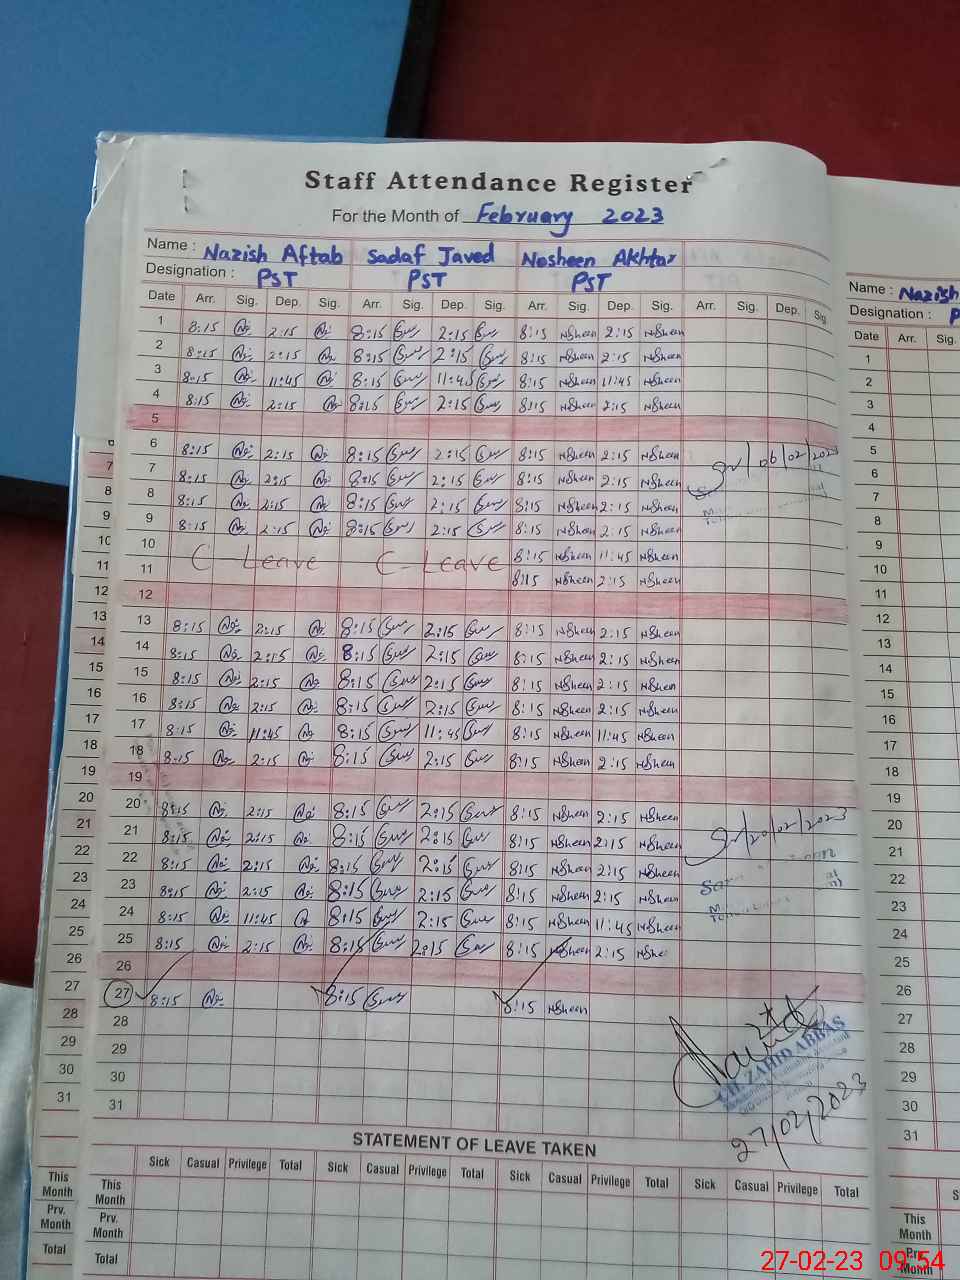 Staff Attendance Register
For the Month of February 2023
Name : Nazish Aftab Sadaf Javed Nosheen Akhtar
Designation : PST PST PST
Date Arr. Sig. Dep. Sig. Arr. Sig. Dep. Sig. Arr. Sig. Dep. Sig. Arr. Sig. Dep. Sig.
1 8:15 2:15 8:15 2:15 8:15 NSheen 2:15 NSheen
2 8:15 2:15 8:15 2:15 8:15 NSheen 2:15 NSheen
3 8:15 11:45 8:15 11:45 8:15 NSheen 11:45 NSheen
4 8:15 2:15 8:15 2:15 8:15 NSheen 2:15 NSheen
5
6 8:15 2:15 8:15 2:15 8:15 NSheen 2:15 NSheen 06/02/2023
7 8:15 2:15 8:15 2:15 8:15 NSheen 2:15 NSheen
8 8:15 2:15 8:15 2:15 8:15 NSheen 2:15 NSheen
9 8:15 2:15 8:15 2:15 8:15 NSheen 2:15 NSheen
10 C-Leave C-Leave 8:15 NSheen 11:45 NSheen
11 8:15 NSheen 2:15 NSheen
12
13 8:15 2:15 8:15 2:15 8:15 NSheen 2:15 NSheen
14 8:15 2:15 8:15 2:15 8:15 NSheen 2:15 NSheen
15 8:15 2:15 8:15 2:15 8:15 NSheen 2:15 NSheen
16 8:15 2:15 8:15 2:15 8:15 NSheen 2:15 NSheen
17 8:15 11:45 8:15 11:45 8:15 NSheen 11:45 NSheen
18 8:15 2:15 8:15 2:15 8:15 NSheen 2:15 NSheen
19
20 8:15 2:15 8:15 2:15 8:15 NSheen 2:15 NSheen 20/02/2023
21 8:15 2:15 8:15 2:15 8:15 NSheen 2:15 NSheen
22 8:15 2:15 8:15 2:15 8:15 NSheen 2:15 NSheen
23 8:15 2:15 8:15 2:15 8:15 NSheen 2:15 NSheen
24 8:15 11:45 8:15 2:15 8:15 NSheen 11:45 NSheen
25 8:15 2:15 8:15 2:15 8:15 NSheen 2:15 NShe
26
27 8:15 8:15 8:15 NSheen
28
29
30
31
ZAHID ABBAS
27/02/2023
STATEMENT OF LEAVE TAKEN
Sick Casual Privilege Total Sick Casual Privilege Total Sick Casual Privilege Total Sick Casual Privilege Total
This Month
Prv. Month
Total
Name : Nazish
Designation : P
Date Arr. Sig.
1
2
3
4
5
6
7
8
9
10
11
12
13
14
15
16
17
18
19
20
21
22
23
24
25
26
27
28
29
30
31
This Month
Prv. Month
6
7
8
9
10
11
12
13
14
15
16
17
18
19
20
21
22
23
24
25
26
27
28
29
30
31
This Month
Prv. Month
Total
27-02-23 09:54